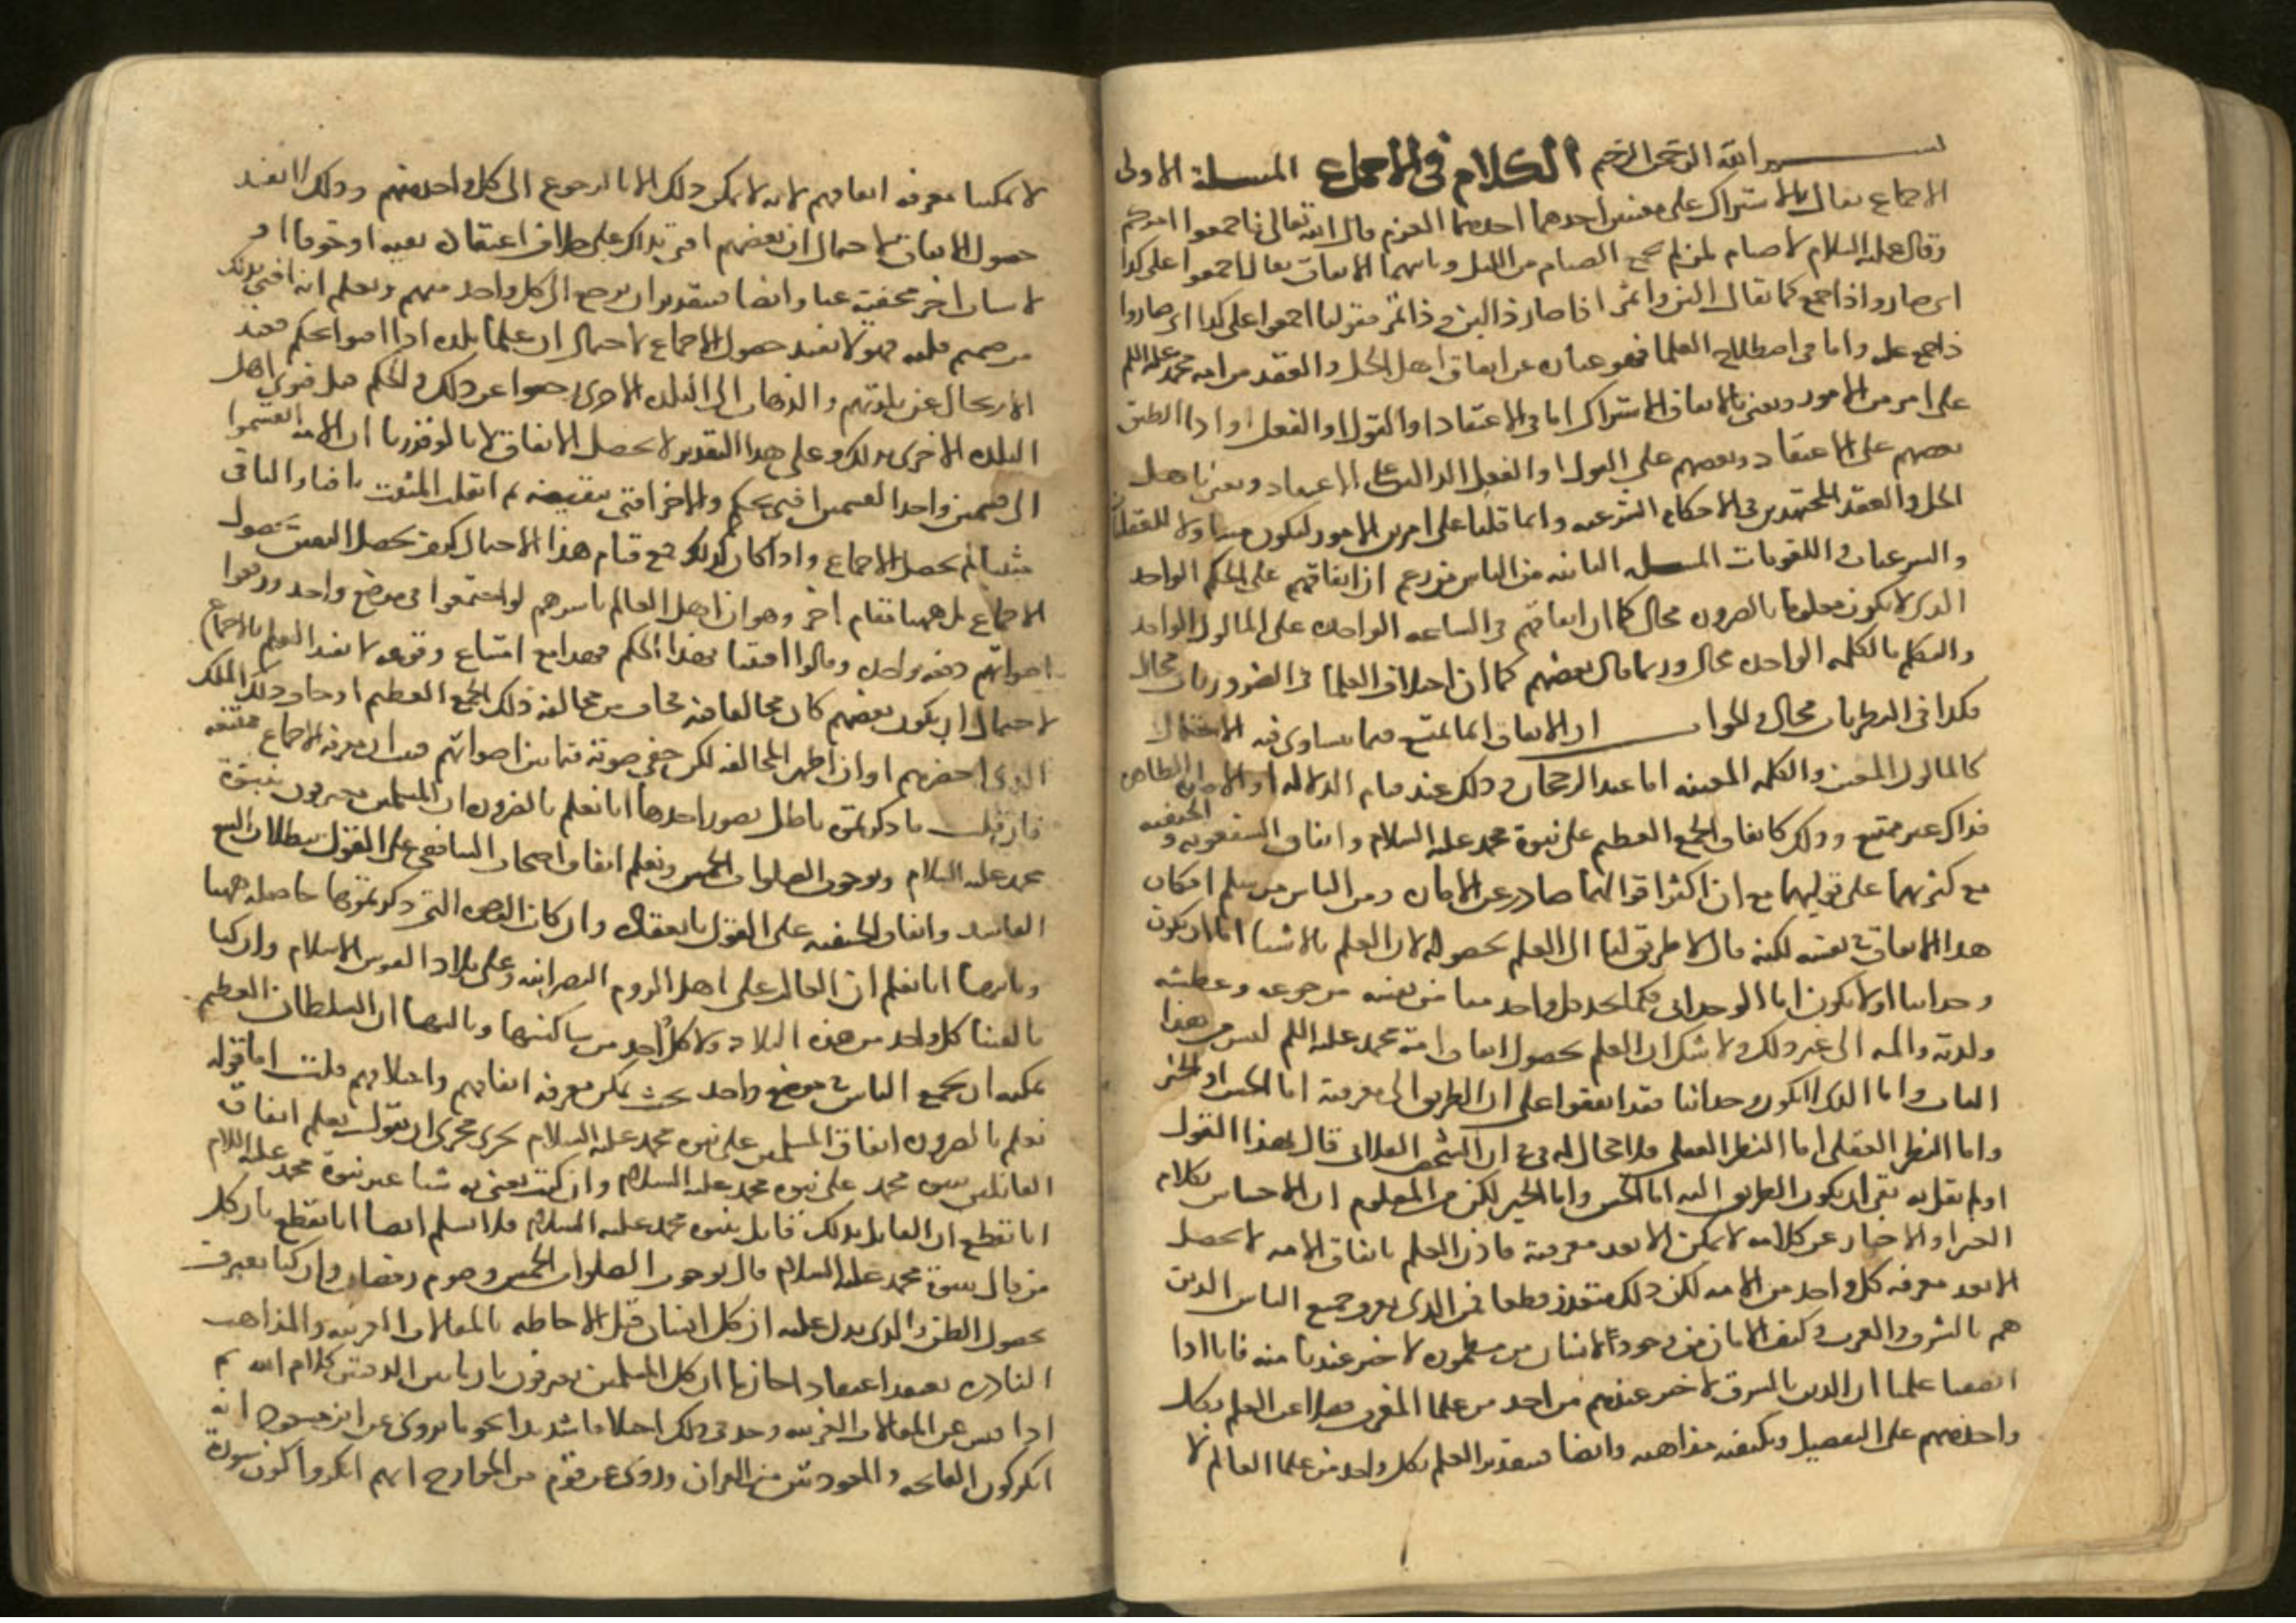 بسم الله الرحمن الرحيم الكلام في الاجماع المسلة الاولى
الاجماع يقال بالاشتراك على معنيين احدهما العزم قال الله تعالى فاجمعوا امركم
وقال عليه السلام لا صيام لمن لم يجمع الصيام من الليل وثانيهما الاتفاق يقال اجمعوا على كذا
اي صاروا ذا جمع كما يقال البن واتمر اذا صار ذا لبن وذا تمر فقولنا اجمعوا على كذا اي صاروا
ذا جمع عليه واما في اصطلاح العلما فهو عبارة عن اتفاق اهل الحل والعقد من امة محمد عليه السلم
على امر من الامور ونعني بالاتفاق الاشتراك اما في الاعتقاد او القول او الفعل او اذا اطبق
بعضهم على الاعتقاد وبعضهم على القول او الفعل الدالين على الاعتقاد ونعني باهل
الحل والعقد المجتهدين في الاحكام الشرعيه وانما قلنا على امر من الامور ليكون متناولا للعقليات
والشرعيات واللغويات المسله الثانيه من الناس من زعم ان اتفاقهم على الحكم الواحد
الذي لا يكون معلوما بالضروره محال كما ان اتفاقهم في الساعه الواحده على الماكول الواحد
والتكلم بالكلمه الواحده محال وربما قال بعضهم كما ان اختلاف العلما في الضروريات محال
فكذا في النظريات محال والجواب ان الاتفاق انما يمتنع فيما يتساوى فيه الاحتمال
كالماكول المعين والكلمه المعينه اما عند الرجحان وذلك عند قيام الدلاله او الاماره الظاهره
فذاك غير ممتنع وذلك كاتفاق الجمع العظيم على نبوة محمد عليه السلام واتفاق الشفعويه والحنفيه
مع كثرتهما على قوليهما مع ان اكثر اقوالهما صادر عن الاماره ومن الناس من سلم امكان
هذا الاتفاق في نفسه لكنه قال لا طريق لنا الى العلم بحصوله لان العلم بالاشيا اما ان يكون
وجدانيا او لا يكون اما الوجداني فكما يجد كل واحد منا من نفسه من جوعه وعطشه
ولذته والمه الى غير ذلك ولا شك ان العلم بحصول اتفاق امة محمد عليه السلم ليس من هذا
الباب واما الذي لا يكون وجدانيا فقد اتفقوا على ان الطريق الى معرفته اما الحس او الخبر
واما النظر العقلي اما النظر العقلي فلا مجال له في ان الشخص الفلاني قال بهذا القول
او لم يقل به بقي ان يكون الطريق اليه اما الحس واما الخبر لكن من المعلوم ان الاحساس بكلام
الغير او الاخبار عن كلامه لا يمكن الا بعد معرفته فاذن العلم باتفاق الامه لا يحصل
الا بعد معرفه كل واحد من الامه لكن ذلك متعذر قطعا فمن الذي يعرف جميع الناس الذين
هم بالشرق والغرب وكيف الامان من وجود انسان في مطموره لا خبر عندنا منه فانا اذا
انصفنا علمنا ان الذين بالشرق لا خبر عندهم من احد من علما المغرب فضلا عن العلم بكل
واحد منهم على التفصيل وبكيفيه مذاهبه وايضا فبتقدير العلم بكل واحد من علما العالم لا
لا يمكننا معرفه اتفاقهم لانه لا يمكن ذلك الا بالرجوع الى كل واحد منهم وذلك لا يفيد
حصول الاتفاق لاحتمال ان بعضهم افتى بذلك على خلاف اعتقاده تقيه او خوفا او
لاسباب اخر مخفيه عنا وايضا فبتقدير ان نرجع الى كل واحد منهم ونعلم انه افتى بذلك
من صميم قلبه فهو لا يفيد حصول الاجماع لاحتمال ان علما بلده اذا افتوا بحكم فعند
الارتحال عن بلدتهم والذهاب الى البلده الاخرى رجعوا عن ذلك الحكم قبل فتوى اهل
البلده الاخرى بذلك وعلى هذا التقدير لا يحصل الاتفاق لانا لو قدرنا ان الامه انقسموا
الى قسمين واحد القسمين افتى بحكم والاخر افتى بنقيضه ثم انقلب المثبت نافيا والنافي
مثبتا لم يحصل الاجماع واذا كان كذلك فمع قيام هذا الاحتمال كيف يحصل اليقين بحصول
الاجماع بل ههنا مقام اخر وهو ان اهل العالم باسرهم لو اجتمعوا في موضع واحد ورفعوا
اصواتهم دفعه واحده وقالوا افتينا بهذا الحكم فهذا مع امتناع وقوعه لا يفيد العلم بالاجماع
لاحتمال ان يكون بعضهم كان مخالفا فيه فخاف من مخالفه ذلك الجمع العظيم او خاف ذلك الملك
الذي احضرهم او ان اظهر المخالفه لكن خفي صوته فيما بين اصواتهم فثبت ان معرفه الاجماع ممتنعه
فان قيل ما ذكرتموه باطل بصور احدها انا نعلم بالضروره ان المسلمين معترفون بنبوة
محمد عليه السلام وبوجوب الصلوات الخمس ونعلم اتفاق اصحاب الشافعي على القول ببطلان البيع
الفاسد واتفاق الحنفيه على القول بانعقاده وان كان الوجوه التي ذكرتموها حاصله ههنا
وثانيها انا نعلم ان الغالب على اهل الروم النصرانيه وعلى بلاد الفرس الاسلام وان كنا
ما لقينا كل واحد من هذه البلاد ولا كل احد من ساكنيها وثالثها ان السلطان العظيم
يمكنه ان يجمع الناس في موضع واحد بحيث يمكن معرفه اتفاقهم واختلافهم قلت اما قوله
نعلم بالضروره اتفاق المسلمين على نبوه محمد عليه السلام يجري مجرى ان يقول نعلم اتفاق
القائلين بنبوه محمد على نبوه محمد عليه السلام وان كنت تعني به شيا غير نبوة محمد عليه السلام
انا نقطع ان القايل بذلك قايل بنبوه محمد عليه السلام فلا نسلم ايضا انا نقطع بان كل
من قال بنبوة محمد عليه السلام قال بوجوب الصلوات الخمس وصوم رمضان وان كنا نعترف
بحصول الظن والذي يدل عليه ان كل انسان قبل الاحاطه بالمقالات الغريبه والمذاهب
النادره يعتقد اعتقادا جازما ان كل المسلمين يعترفون بان ما بين الدفتين كلام الله ثم
اذا فتش عن المقالات الغريبه وجد في ذلك اختلافا شديدا نحو ما يروى عن ابن مسعود انه
انكر كون الفاتحه والمعوذتين من القران وروي عن قوم من الخوارج انهم انكروا كون سورة